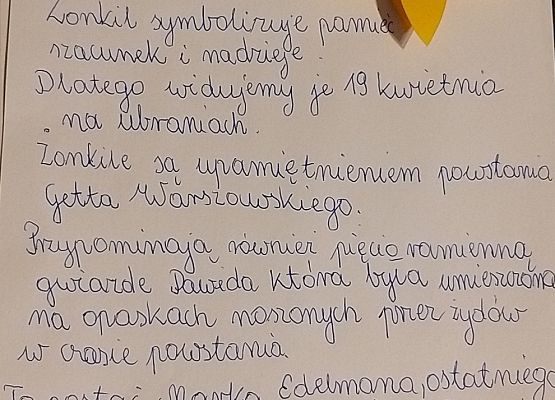 Żonkil symbolizuje pamięć
szacunek i nadzieje.
Dlatego widujemy je 19 kwietnia
na ubraniach.
Żonkile są upamiętnieniem powstania
Getta Warszowskiego.
Przypominają również pięcio ramienną
gwiazde Dawida która była umieszczona
na opaskach noszonych przez żydów
w czasie powstania.
To postać Marka Edelmana, ostatniego